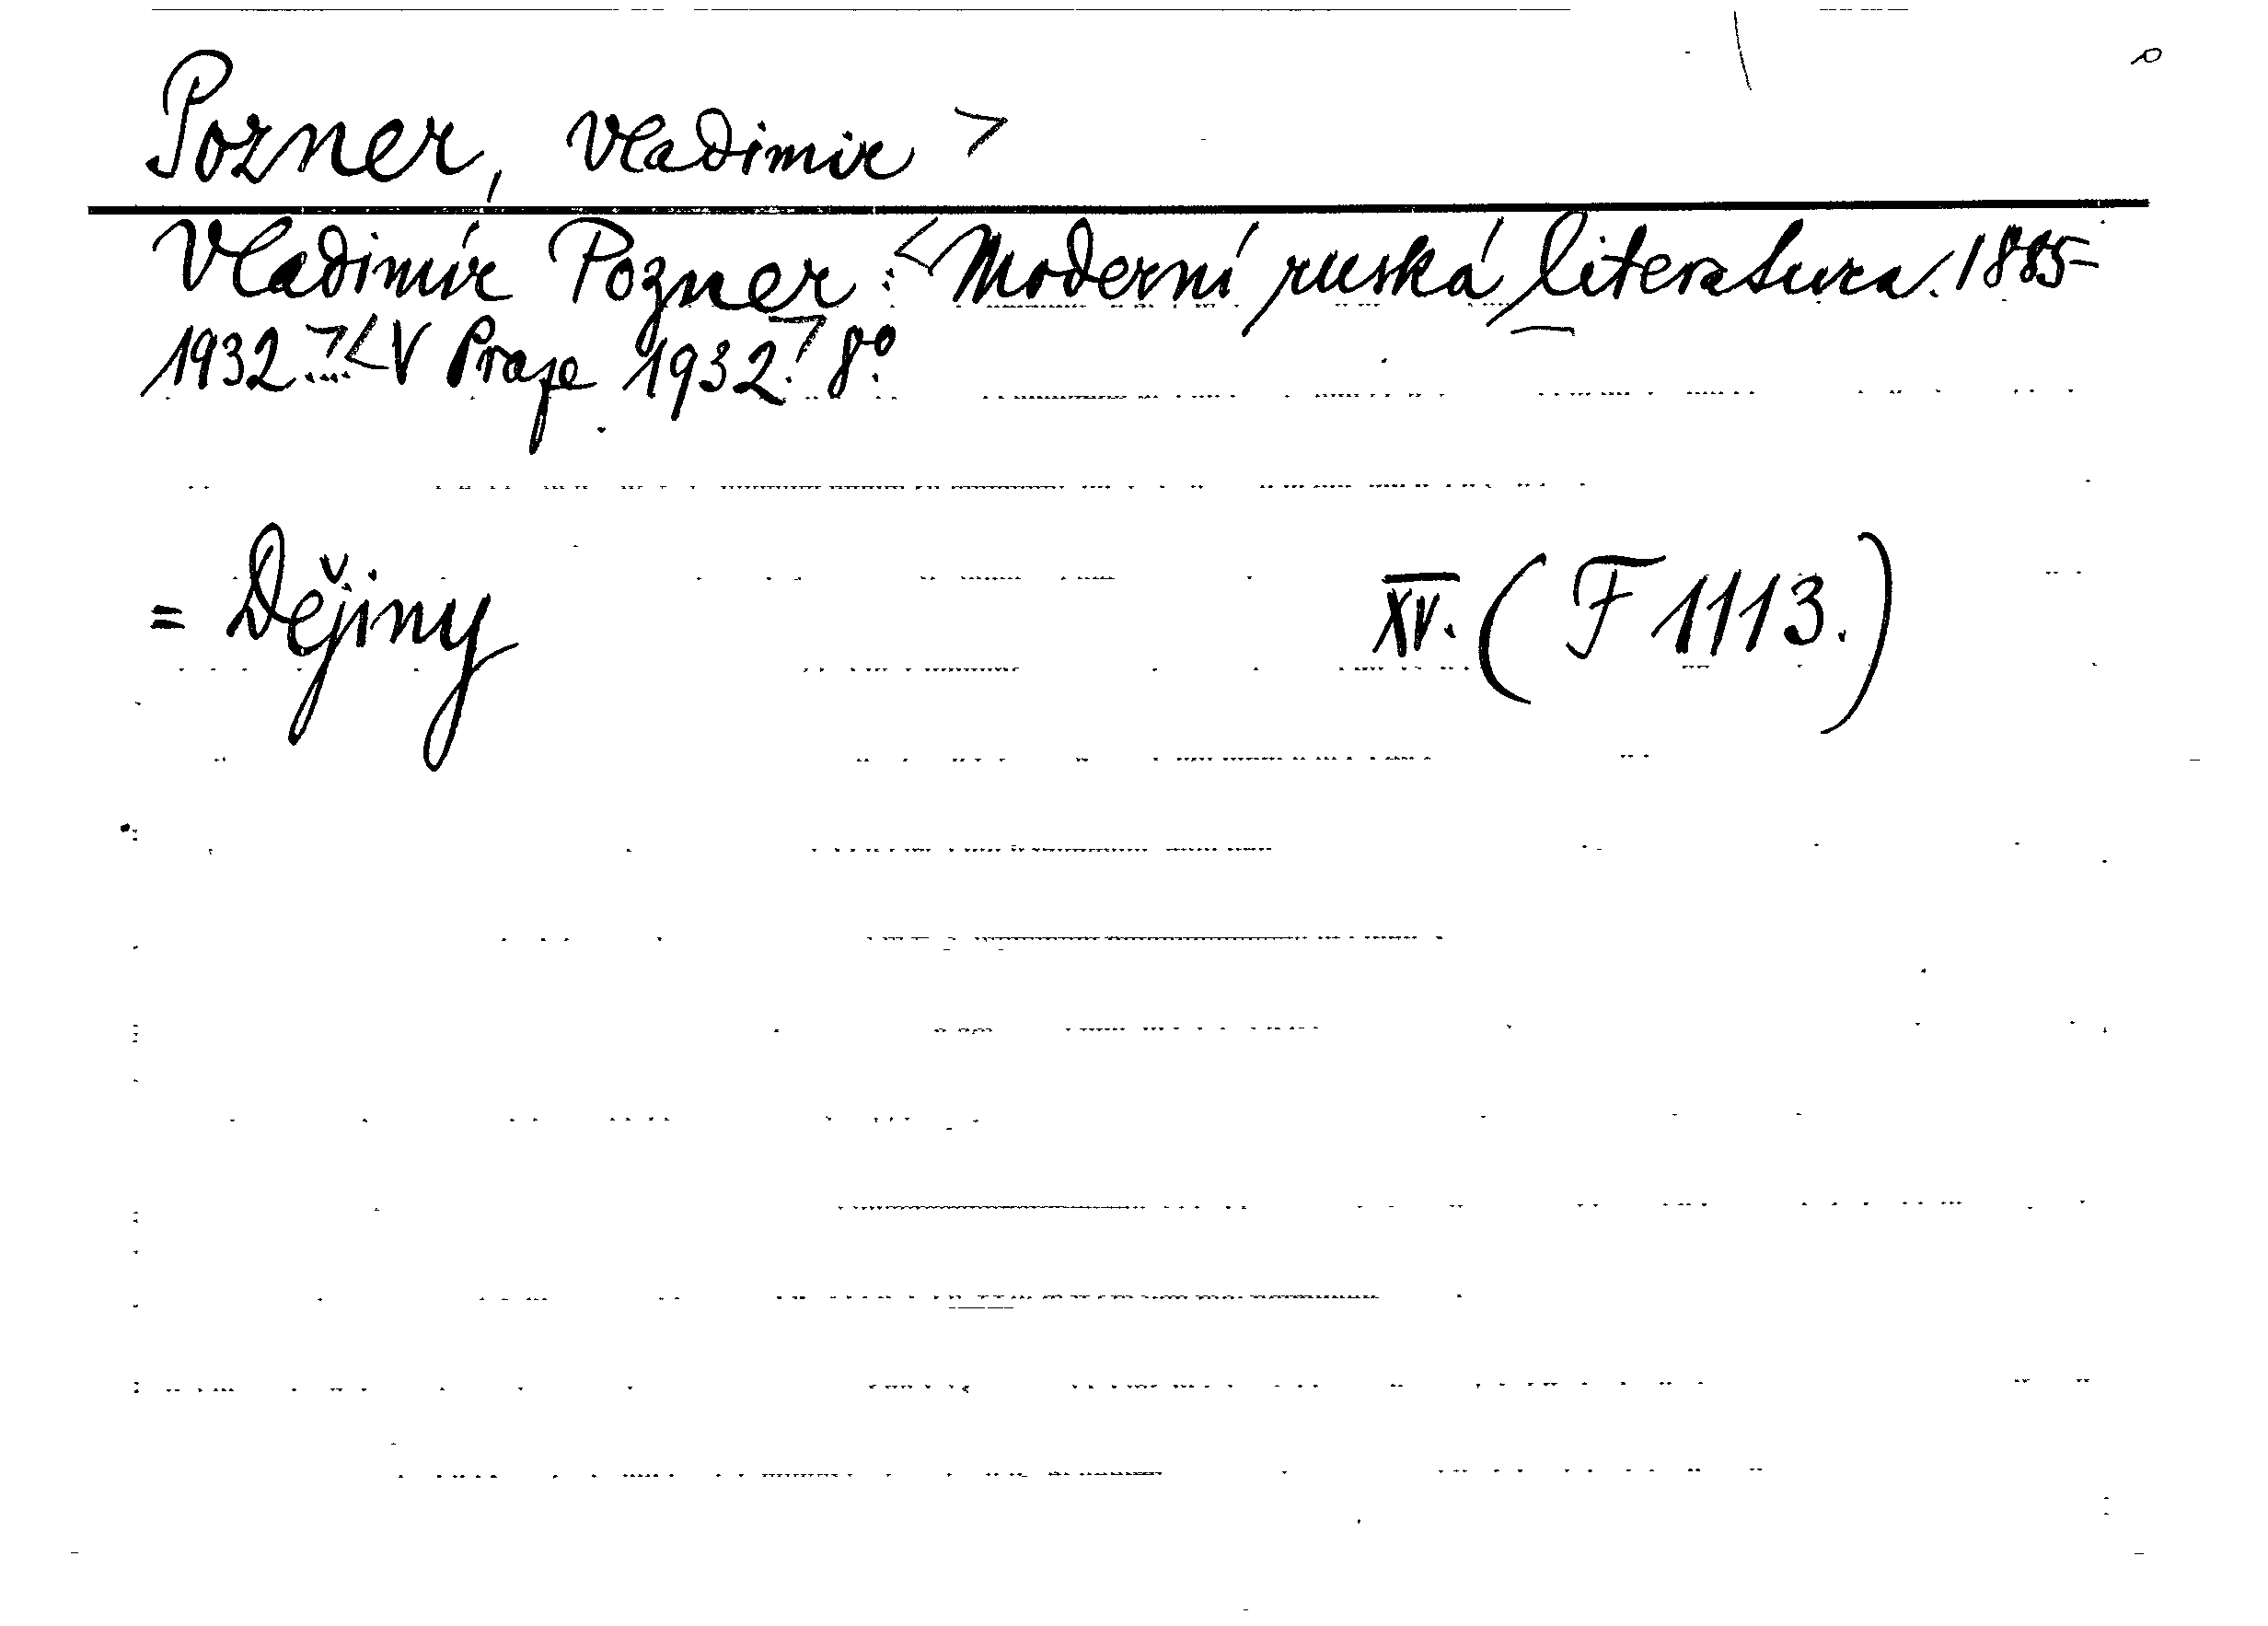 Pozner, Vladimir >
Vladimír Pozner: <Moderní ruská literatura. 1885-
1932.> <V Praze 1932.> 8°.
= Dějiny XV. (F 1113.)